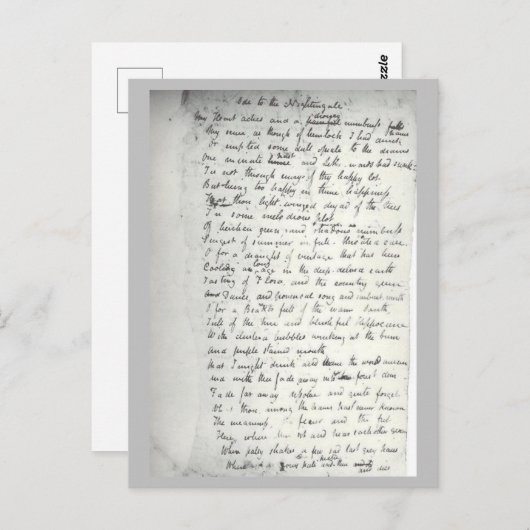 Ode to the Nightingale
drowsy falls
My Heart aches and a painful numbness
My sense as though of hemlock I had drunk
Or emptied some dull opiate to the drains
One minute past and Lethe-wards had sunk
Tis not through envy of thy happy lot
But being too happy in thine happiness
That thou light-winged dryad of the trees
In some melodious plot
Of beechen green and shadows numberless
Singest of summer in full-throated ease
O for a draught of vintage that has been
Cooling an age in the deep-delved earth
long
Tasting of Flora, and the country green
And Dance, and provencal song and sunburnt mirth
O for a Beaker full of the warm South,
Full of the true and blushful Hippocrene
With cluster'd bubbles winking at the brim
And purple stained mouth
That I might drink and leave the world unseen
And with thee fade away into forest dim
Fade far away, dissolve and quite forget
What thou among the leaves hast never known
The weariness, the fever and the fret
Here, where men sit and hear each other groan
Where palsy shakes a few sad last grey hairs
Where youth grows pale and thin and dies
zzle